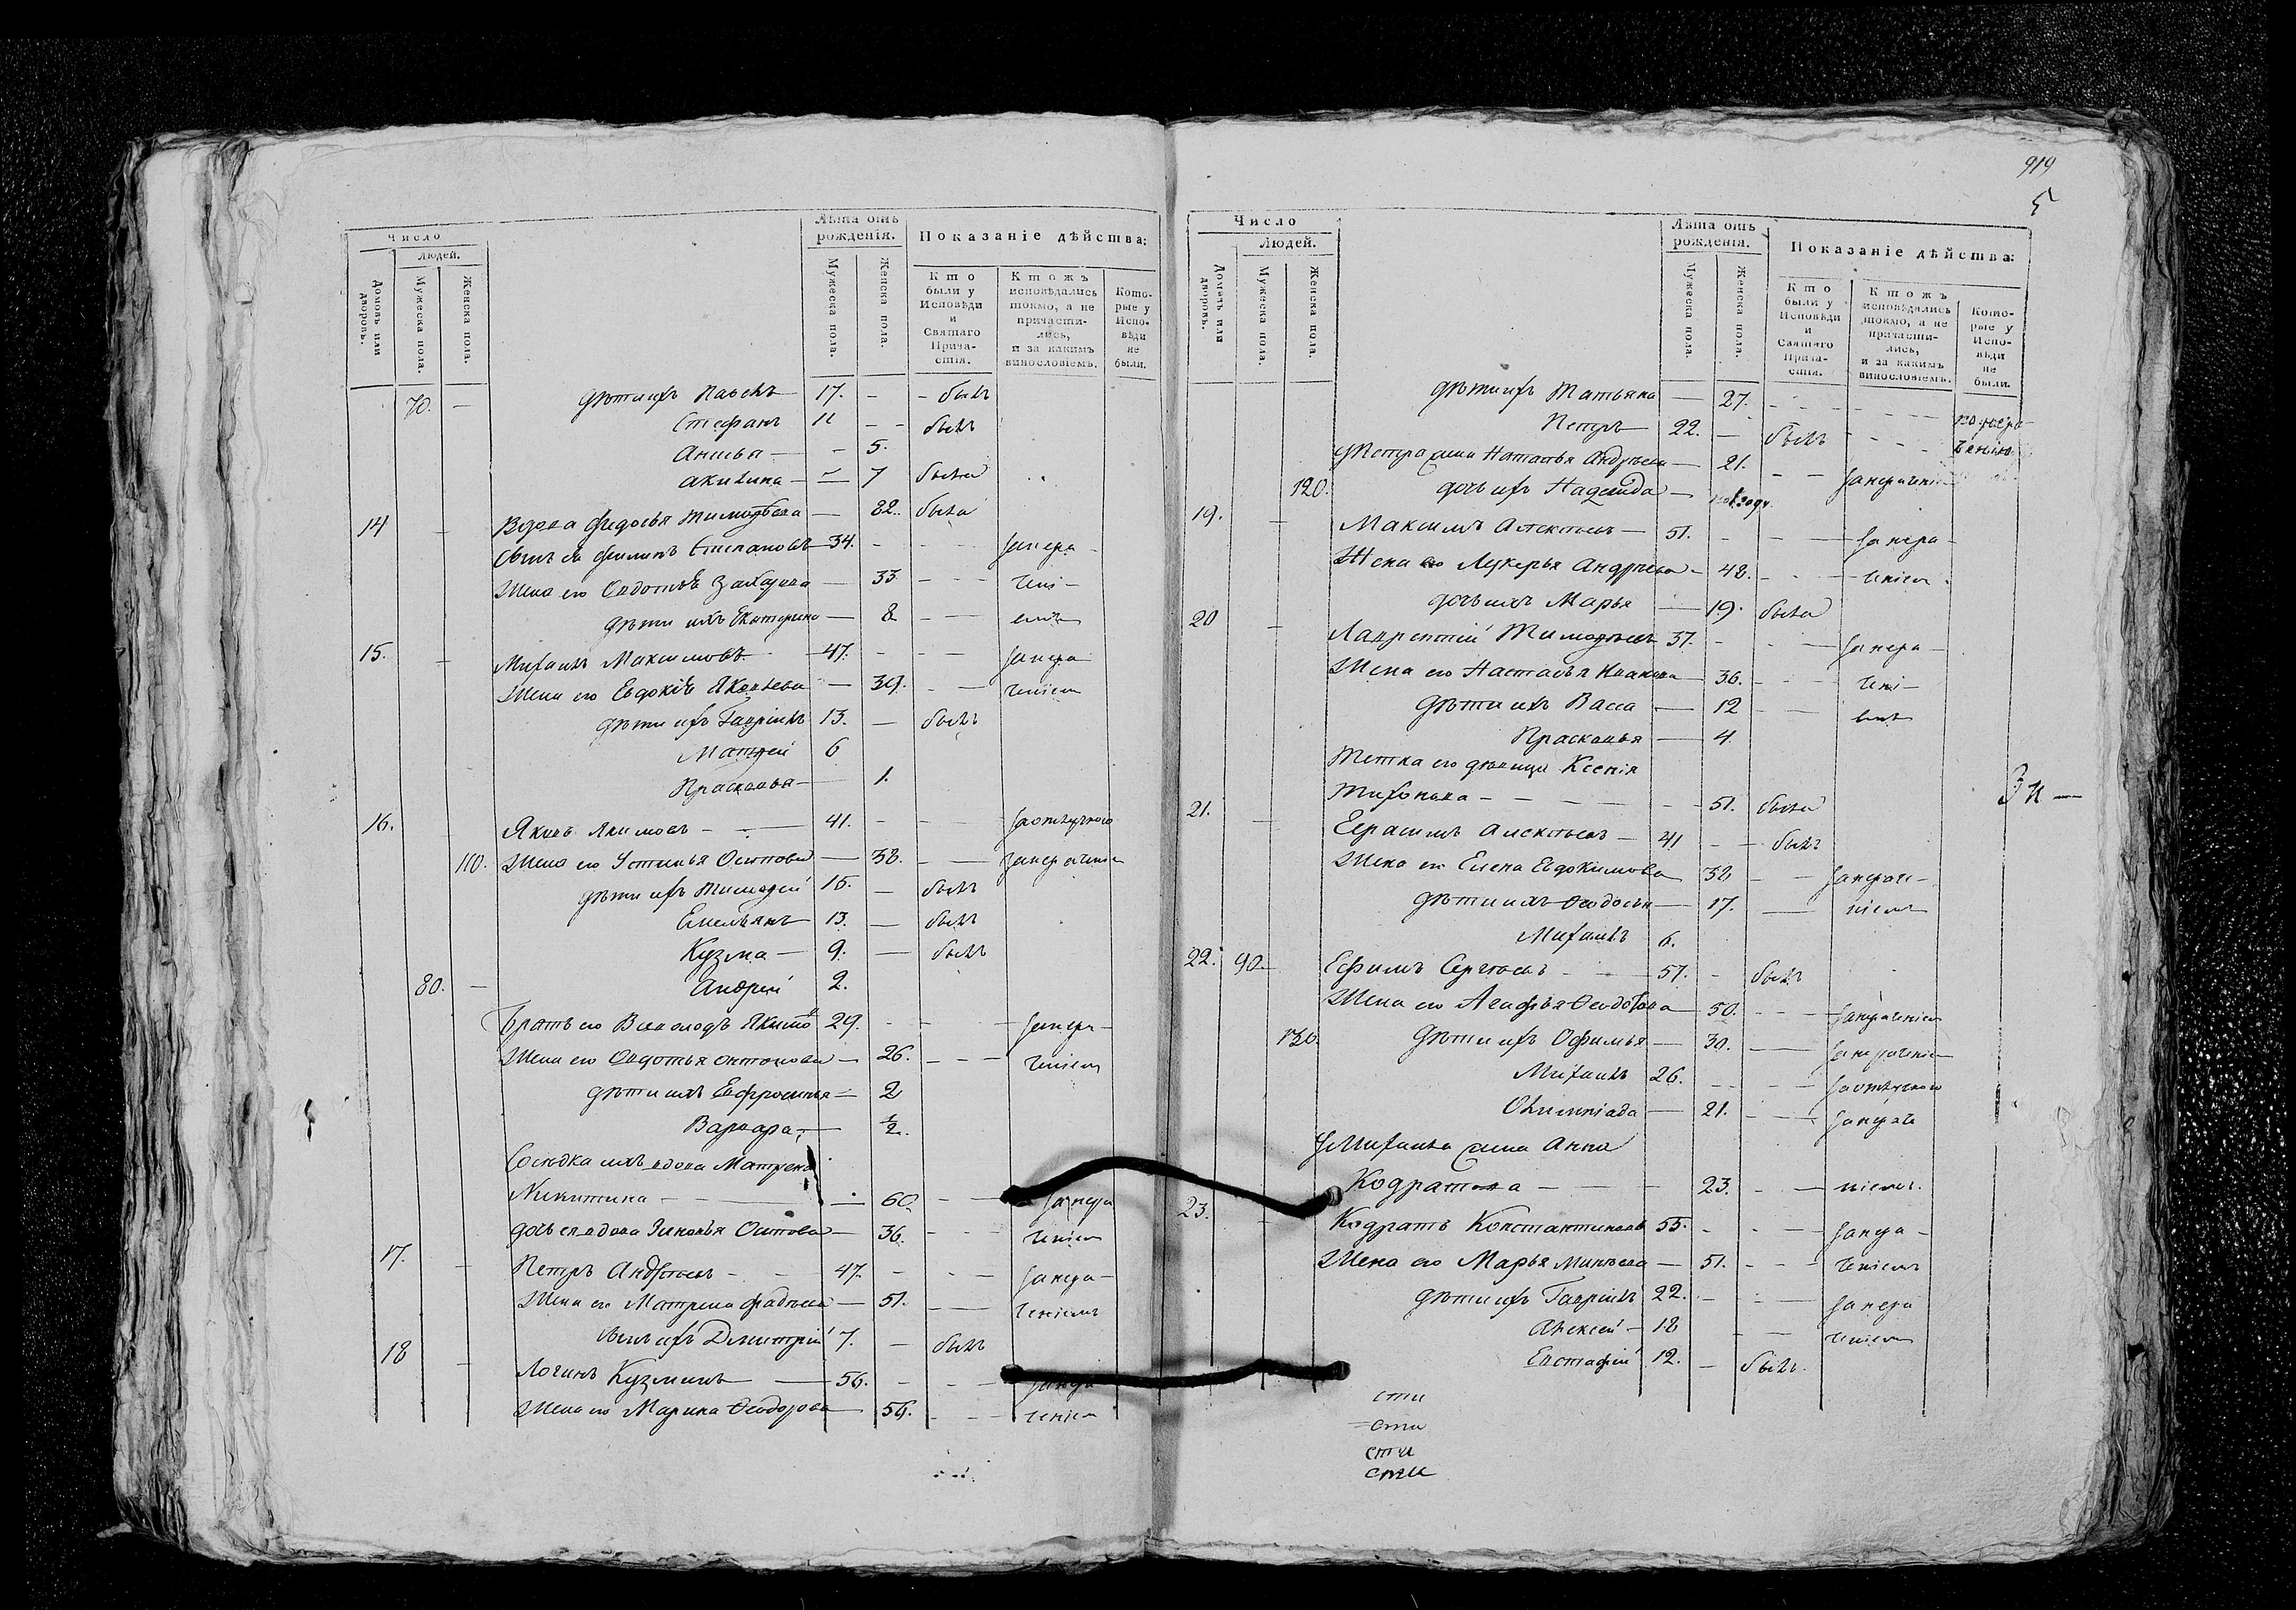 Число
Людей.
Домовъ или дворовъ.
Мужеска пола.
Женска пола.
Лѣта отъ рожденія.
Мужеска пола.
Женска пола.
Показаніе дѣйства:
Кто были у Исповѣди и Святаго Прича-стія.
Ктожъ исповѣдались токмо, а не причасти-лись, и за какимъ винословіемъ.
Кото-рые у Испо-вѣди не были.
70. — дѣти ихъ Павелъ 17. - - былъ
Стефанъ 11 - - былъ
Анисья — - 5.
Акилина — — 7 была
14 - Вдова Федосья Тимофѣева — 82. была
Сынъ ея Филипъ Степановъ 34. - - - занера-
Жена его Овдотья Захарова — 33 - - - чені-
дѣти ихъ Екатерина — 8 - — емъ
15. - Михаилъ Максимовъ 47. - - - занера
Жена его Евдокія Яковлева — 39. - — ченіем
дѣти ихъ Гаврiилъ 13. — былъ
Матфей 6
Прасковья — 1.
16. Яковъ Якимовъ - - — 41. - - — заотлучкою
110. Жена его Устинья Осипова — 38. - — занераченіем
дѣти ихъ Тимофей 15. — былъ
Емельянъ 13. — былъ
Кузма — 9. — былъ
80. — Андрей 2.
Братъ его Всеволодъ Якимов 29. - - - занера-
Жена его Овдотья Антонова — 26. - - - ченіем
дѣти ихъ Евфросинья — 2
Варвара — ½.
Сосѣдка ихъ вдова Матрена
Никитина - - — 60. - — занера
дочь ея вдова Зиновья Осипова — 36. - - - ченіем
17. - Петръ Андреевъ - - 47. - - - занера-
Жена его Матрена Фадѣева — 51. - - — ченіемъ
сынъ ихъ Дмитрій 7. — былъ
18 - Логинъ Кузминъ — 56. - - - занера
Жена его Марина Феодорова — 56. - - - ченіем
919
5
Число
Людей.
Домовъ или дворовъ.
Мужеска пола.
Женска пола.
Лѣта отъ рожденія.
Мужеска пола.
Женска пола.
Показаніе дѣйства:
Кто были у Исповѣди и Святаго Прича-стія.
Ктожъ исповѣдались токмо, а не причасти-лись, и за какимъ винословіемъ.
Кото-рые у Испо-вѣди не были.
дѣти ихъ Татьяна — 27. - - - - - - по нера-
Петръ — 22. — былъ - - - ченію
У Петра жена Наталья Андреева — 21. - — занерачені
120. дочь ихъ Надежда —
19. - Максимъ Алексѣевъ — 51. - - — занера-
Жена его Лукерья Андреева — 48. - - — ченіем
дочь ихъ Марья — 19. была
20 - Лаврентій Тимофѣевъ 37. - - — занера-
Жена его Настасья Иванова — 36. - - - чені-
дѣти ихъ Васса — 12 - — емъ
Прасковья — 4.
Тетка его дѣвица Ксенія
Тихонова - - - - - 51. была
Зи —
21. - Герасимъ Алексѣевъ — 41 - — былъ
Жена его Елена Евдокимова 32 - — занераче-
дѣти ихъ Феодосья — 17. — ніемъ
Михаилъ 6.
22. 90. - Ефимъ Сергѣевъ - — 57. - былъ
Жена его Агафья Федотова — 50. - - - занераченіем
130. дѣти ихъ Офимья — 30. - — занераченіе
Михаилъ 26. - - - заотлучкою
Олимпіада — 21. - - - занераче
У Михаила жена Анна
Кодратова — - — 23. - — ніемъ.
23. - Кодратъ Константиновъ 55. - - — занера-
Жена его Марья Минѣева — 51. - - - ченіемъ
дѣти ихъ Гаврiилъ 22. - - - занера
Алексей - 18 - — ченіем
Евстафій 12. — былъ.
сти
сти
сти
сти